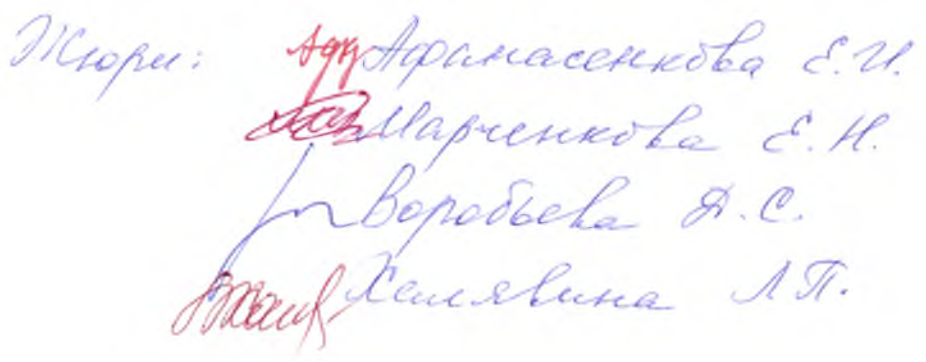 Жюри: Афанасенкова Е.И.
Марченкова Е.Н.
Воробьева Я.С.
Хелявина Л.П.